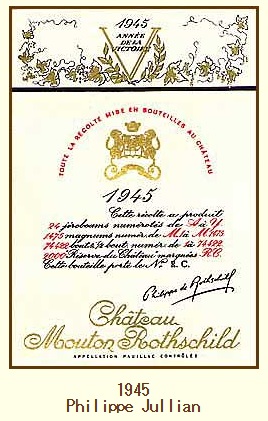 1945
ANNÉE
DE LA
VICTOIRE
V
TOUTE LA RÉCOLTE MISE EN BOUTEILLES AU CHÂTEAU
1945
Cette récolte a produit
24 jéroboams numérotés de A à Y
1475 magnums numér de M.1 à M.1475
74422 bout & ½ bout numér de 1 à 74422
2000 Réserve du Château marquées R.C.
Cette bouteille porte le No R.C.
Philippe de Rothschild
Château
Mouton Rothschild
APPELLATION PAUILLAC CONTRÔLÉE
1945
Philippe Jullian